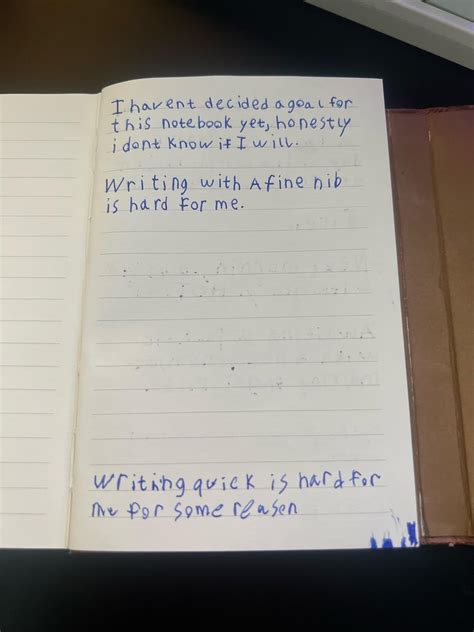 I havent decided a goal for
this notebook yet, honestly
i dont know if I will.
Writing with A fine nib
is hard for me.
Writing quick is hard for
me for some reasen